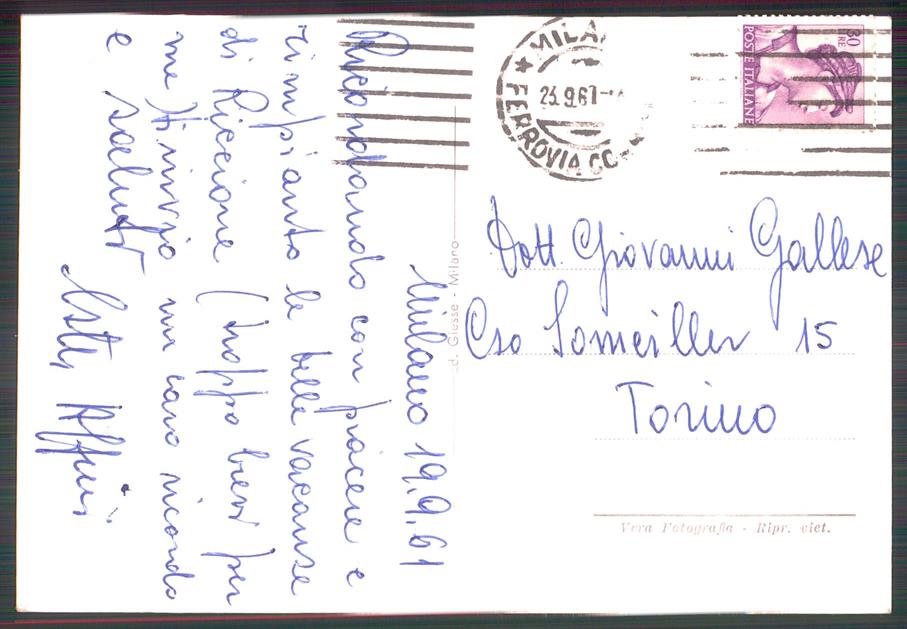 Milano 19.9.61
Ricordando con piacere e
rimpianto le belle vacanze
di Riccione (troppo brevi per
me ti invio un caro ricordo
e saluti
MILA
FERROVIA CC
23.9.61
30 LIRE
POSTE ITALIANE
Dott. Giovanni Gallese
Cso Someiller 15
Torino
d. Giesse - Milano
Vera Fotografia - Ripr. viet.